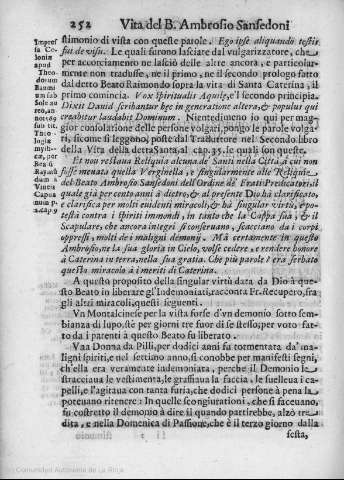 252 Vita del B. Ambrosio Sansedoni
stimonio di vista con queste parole. Ego ipse aliquando testis
fui de visu. Le quali furono lasciate dal vulgarizzatore, che
per accorciamento ne lasciò delle altre ancora, e particolar-
mente non tradusse, ne il primo, ne il secondo prologo fatto
dal detto Beato Raimondo sopra la vita di Santa Caterina, il
primo comincia. Vox Spiritualis Aquilæ, e'l secondo principia.
Dixit Dauid scribantur hęc in generatione altera, & populus qui
creabitur laudabit Dominum. Nientedimeno io qui per mag-
gior consolatione delle persone volgari, pongo le parole volgari,
sicome si leggono, poste dal Traduttore nel Secondo libro
della Vita della detta Santa, al cap. 35. le quali son queste.
Et non restaua Reliquia alcuna de Santi nella Città, a i cui non
fusse menata quella Verginella, e singularmente alle Reliquie
del Beato Ambrosio Sansedoni dell'Ordine dè Frati Predicatori, il
quale già per cento anni à dietro, & al presente Dio hà clarificato,
e clarifica per molti euidenti miracoli, & hà singular virtù, e po-
testà contra i spiriti immondi, in tanto che la Cappa sua, & il
Scapulare, che ancora integri si conseruano, scacciano da i corpi
oppressi, molti de i maligni demonij. Mà certamente in questo
Ambrosio, ne la sua gloria in Cielo, volse cedere, e rendere honore
à Caterina in terra, nella sua gratia. Che più parole? era serbato
questo miracolo à i meriti di Caterina.
A questo proposito della singular virtù data da Dio à que-
sto Beato in liberare gl'Indemoniati, racconta Fr. Recupero, fra
gli altri miracoli, questi seguenti.
Vn Montalcinese per la vista forse d'vn demonio sotto sem-
bianza di lupo, stè per giorni tre fuor di se stesso, per voto fat-
to da i parenti à questo Beato fu liberato.
Vna Donna da Pilli, per dodici anni fu tormentata da' ma-
ligni spiriti, e nel settimo anno, si conobbe per manifesti segni,
ch'ella era veramente indemoniata, perche il Demonio le
stracciaua le vestimenta, le graffiaua la faccia, le suelleua i ca-
pelli, e l'agitaua con tanta furia, che dodici persone à pena la
poteuano ritenere: In quelle scongiurationi, che si faceuano,
fu costretto il demonio à dire il quando partirebbe, alzò tre
dita, e nella Domenica di Passione, che è il terzo giorno dalla
sesta,
Impress
fa Co-
loniæ
apud
Theo-
dorum
Baumi
um sub
Sole au
reo, an
no &c.
sub tit.
Theo-
logiæ
mysti-
cæ, per
Fr.
Raym
dum à
Vineis
Capua
num p.
2. cap. 9
Comunidad Autónoma de La Rioja